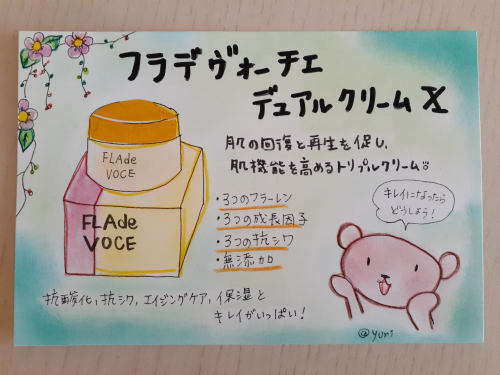 フラデヴォーチェ
デュアルクリームX
肌の回復と再生を促し、
肌機能を高めるトリプルクリーム
・3つのフラーレン
・3つの成長因子
・3つの抗シワ
・無添加
キレイになったら
どうしよう!
FLAde
VOCE
FLAde
VOCE
抗酸化、抗シワ、エイジングケア、保湿と
キレイがいっぱい!
@yuri